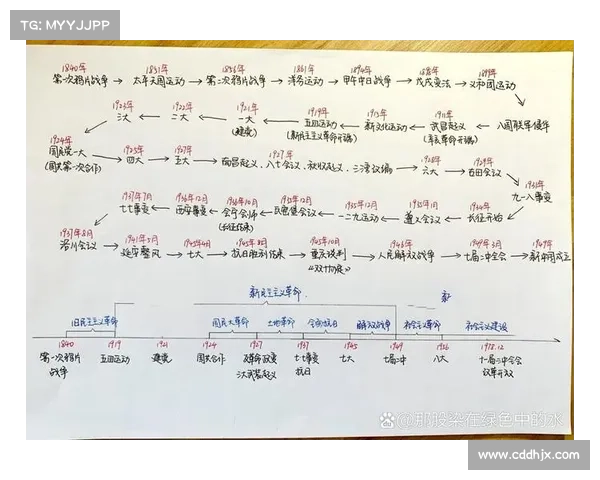 TG: MYYJJPP
1840年 1851年 1856年 1861年 1894年 1898年 1899年
第一次鸦片战争 → 太平天国运动 → 第二次鸦片战争 → 洋务运动 → 甲午中日战争 → 戊戌变法 → 义和团运动
1923年 1922年 1921年 1919年 1915年 1911年
三大 ← 二大 ← 一大 ← 五四运动 ← 新文化运动 ← 武昌起义 ← 八国联军侵华
(建党) (新民主主义革命开端) (辛亥革命开端)
1924年 1925年 1927年 1927年 1928年 1929年
国民党一大 → 四大 → 五大 → 南昌起义、八七会议、秋收起义、三湾改编 → 六大 → 古田会议
(国共第一次合作)
1937年7月 1936年12月 1936年10月 1935年12月 1935年12月 1935年1月 1934年 1931年
七七事变 ← 西安事变 ← 会宁会师 ← 瓦窑堡会议 ← 一二九运动 ← 遵义会议 ← 长征开始 ← 九一八事变
(长征结束)
1937年8月 1941年5月 1945年4月 1945年8月 1945年10月 1946年 1949年3月 1949年
洛川会议 → 延安整风 → 七大 → 抗日胜利结束 → 重庆谈判 → 人民解放战争 → 七届二中全会 → 新中国成立
《双十协定》
新民主主义革命
旧民主主义革命 国民大革命 土地革命 全面抗日 解放战争 社会主义革命 社会主义建设
1840 1919 1921 1924 1927 1937 1945 1949 1956 1978.12
第一次鸦片战争 五四运动 建党 国共合作 七七事变抗日 七大 七届二中 八大 十一届三中全会改革开放
@那股染在绿色中的水
www.cddhjx.com